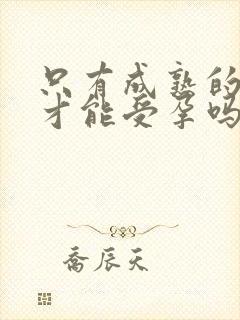 只有成熟的
才能受孕吗
乔辰天